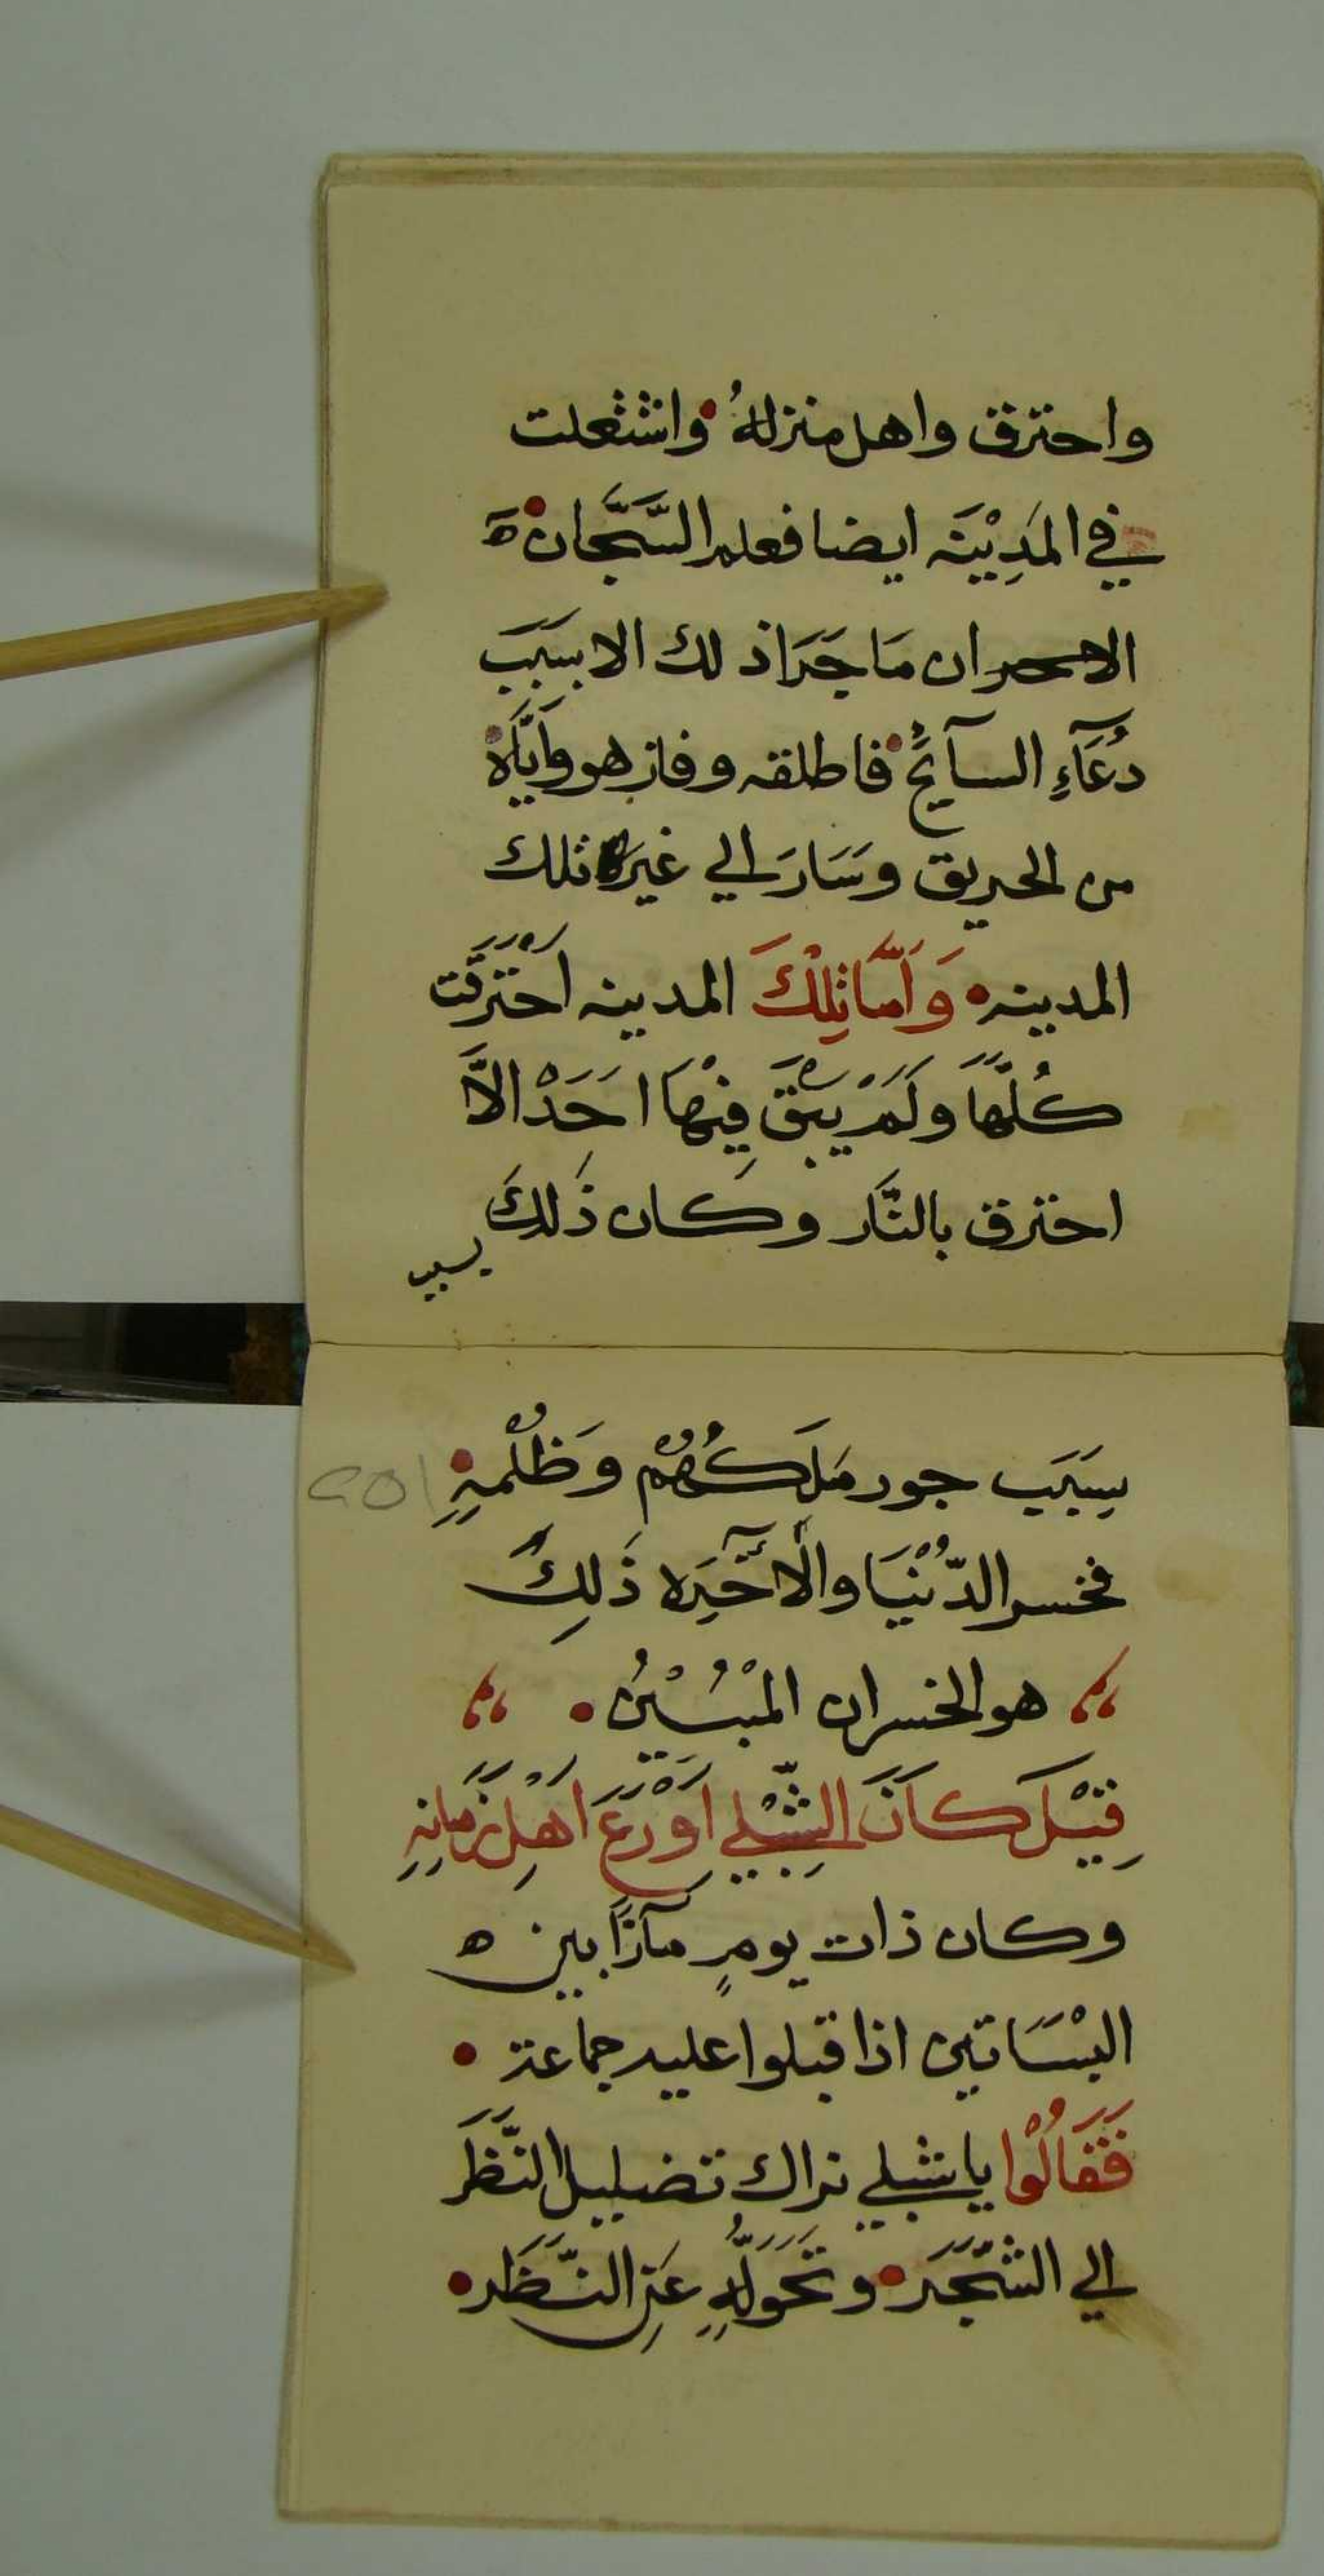 واحترق واهل منزلهُ واشتعلت
في المَدِيْنَه ايضا فعلم السَّجَّان ه
ان مَا جَرَا ذلك الا بسَبَب
دُعَآءِ السآئِحُ فاطلقه وفاز هو وَايَّاهُ
من الحريق وسَارَ الي غير تلك
المدينه وَاَمَّا تِلْكَ المدينه اَحْتَرَقَت
كُلّهَا ولَمْ يَبْقَ فِيْهَا احَدْ الاَّ
احترق بالنَّار وكان ذَلكَ
بسبب
بِسَبَب جور مَلِكُهُمْ وَظُلْمِهِ
فخسر الدُّنْيَا والْآخِرَه ذَلِكَ
هو الخسران المُبْيْنُ
قِيْلَ كَانَ الشِّبْلِي اَوْرَعَ اَهْلِ زَمَانِهِ
وكان ذات يومٍ مآرًا بين ه
البْسَاتين اذ اقبلوا عليه جماعة
فَقَالُوْا يا شبلي نراك تضليل النَّظَر
الي الشَّجَر وتَحَوَّلُهِ عَنِ النَّظَر
٢٥١